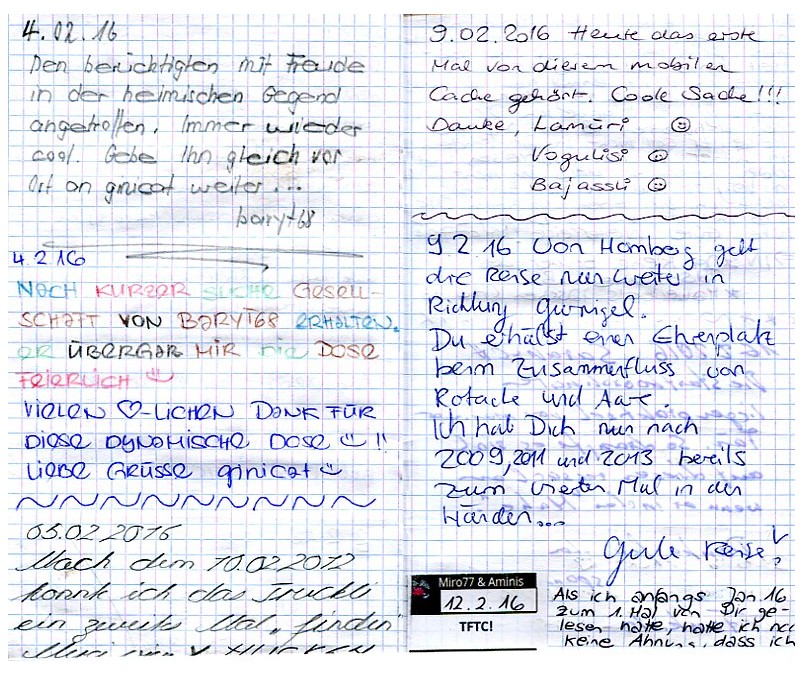 4.02.16
Den berüchtigten mit Freude
in der heimischen Gegend
angetroffen. Immer wieder
cool. Gebe Ihn gleich vor
Ort an ginicat weiter...
baryt68
4.2.16
NACH KURZER SUCHE GESELL-
SCHAFT VON BARYT68 ERHALTEN.
ER ÜBERGAB MIR DIE DOSE
FEIERLICH
VIELEN ♡-LICHEN DANK FÜR
DIESE DYNAMISCHE DOSE !!
LIEBE GRÜSSE ginicat
05.02.2016
Nach dem 10.02.2012
konnte ich das Truckli
ein zweites Mal finden
9.02.2016 Heute das erste
Mal von diesem mobilen
Cache gehört. Coole Sache!!!
Danke, Lamuri
Vogulisi
Bajassli
9.2.16 Von Homberg geht
die Reise nun weiter in
Richtung Gurnigel.
Du erhälst einen Ehrenplatz
beim Zusammenfluss von
Rotache und Aare.
Ich hab Dich nun nach
2009, 2011 und 2013 bereits
zum vierten Mal in den
Händen...
Gute Reise!
Miro77 & Aminis
12.2.16
TFTC!
Als ich anfangs Jan 16
zum 1. Mal von Dir ge-
lesen hatte, hatte ich noc
keine Ahnung, dass ich